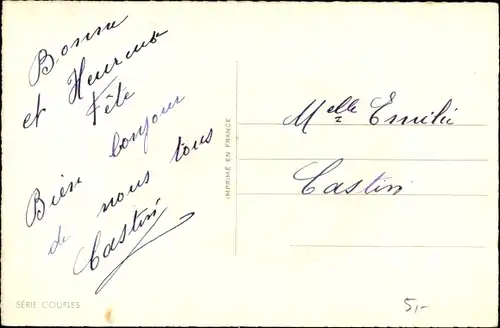 Bonne
et Heureuse
Fête
Bien bonjour
de nous tous
Castin
SÉRIE COUPLES
IMPRIMÉ EN FRANCE
Melle Emilie
Castin
5,-